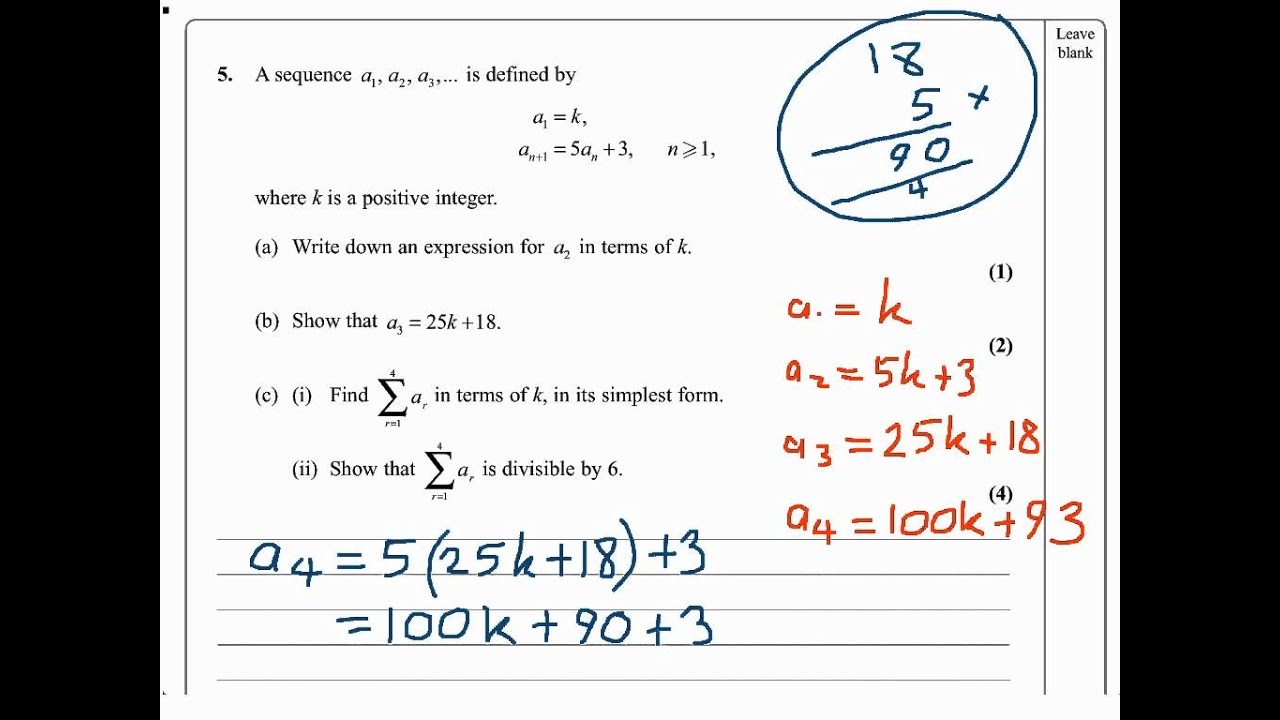 Leave
blank
5. A sequence a₁, a₂, a₃,... is defined by
a₁ = k,
aₙ₊₁ = 5aₙ + 3, n ⩾ 1,
where k is a positive integer.
(a) Write down an expression for a₂ in terms of k.
(1)
(b) Show that a₃ = 25k + 18.
(2)
(c) (i) Find ∑⁴ᵣ₌₁ aᵣ in terms of k, in its simplest form.
(ii) Show that ∑⁴ᵣ₌₁ aᵣ is divisible by 6.
(4)
18
5 ×
90
4
a. = k
a₂ = 5k + 3
a₃ = 25k + 18
a₄ = 100k + 93
a₄ = 5(25k + 18) + 3
= 100k + 90 + 3